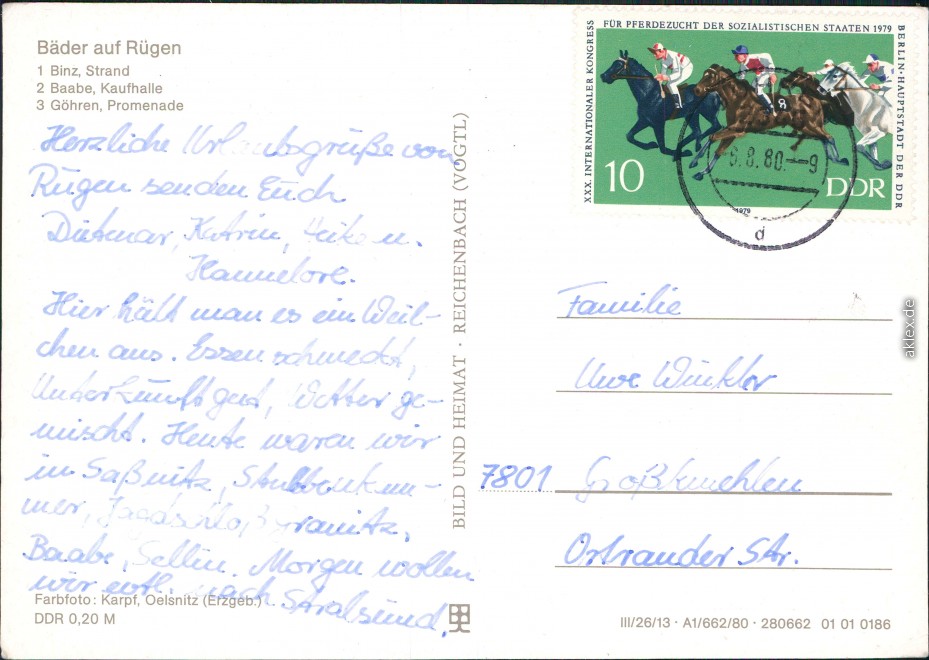 Bäder auf Rügen
1 Binz, Strand
2 Baabe, Kaufhalle
3 Göhren, Promenade
Herzliche Urlaubsgrüße von
Rügen senden Euch
Dietmar, Katrin, Heike u.
Hannelore.
Hier hält man es ein Weil-
chen aus. Essen schmeckt,
Unterkunft gut, Wetter ge-
mischt. Heute waren wir
in Saßnitz, Stubbenkam-
mer, Jagdschloß Granitz,
Baabe, Sellin. Morgen wollen
wir evtl. nach Stralsund.
Farbfoto: Karpf, Oelsnitz (Erzgeb.)
DDR 0,20 M
BILD UND HEIMAT · REICHENBACH (VOGTL)
XXX. INTERNATIONALER KONGRESS
FÜR PFERDEZUCHT DER SOZIALISTISCHEN STAATEN 1979
BERLIN-HAUPTSTADT DER DDR
8
10
DDR
1979
8.80.--9
d
Familie
Uwe Winkler
7801 Großkmehlen
Ortrander Str.
III/26/13 · A1/662/80 · 280662 01 01 0186
aklex.de